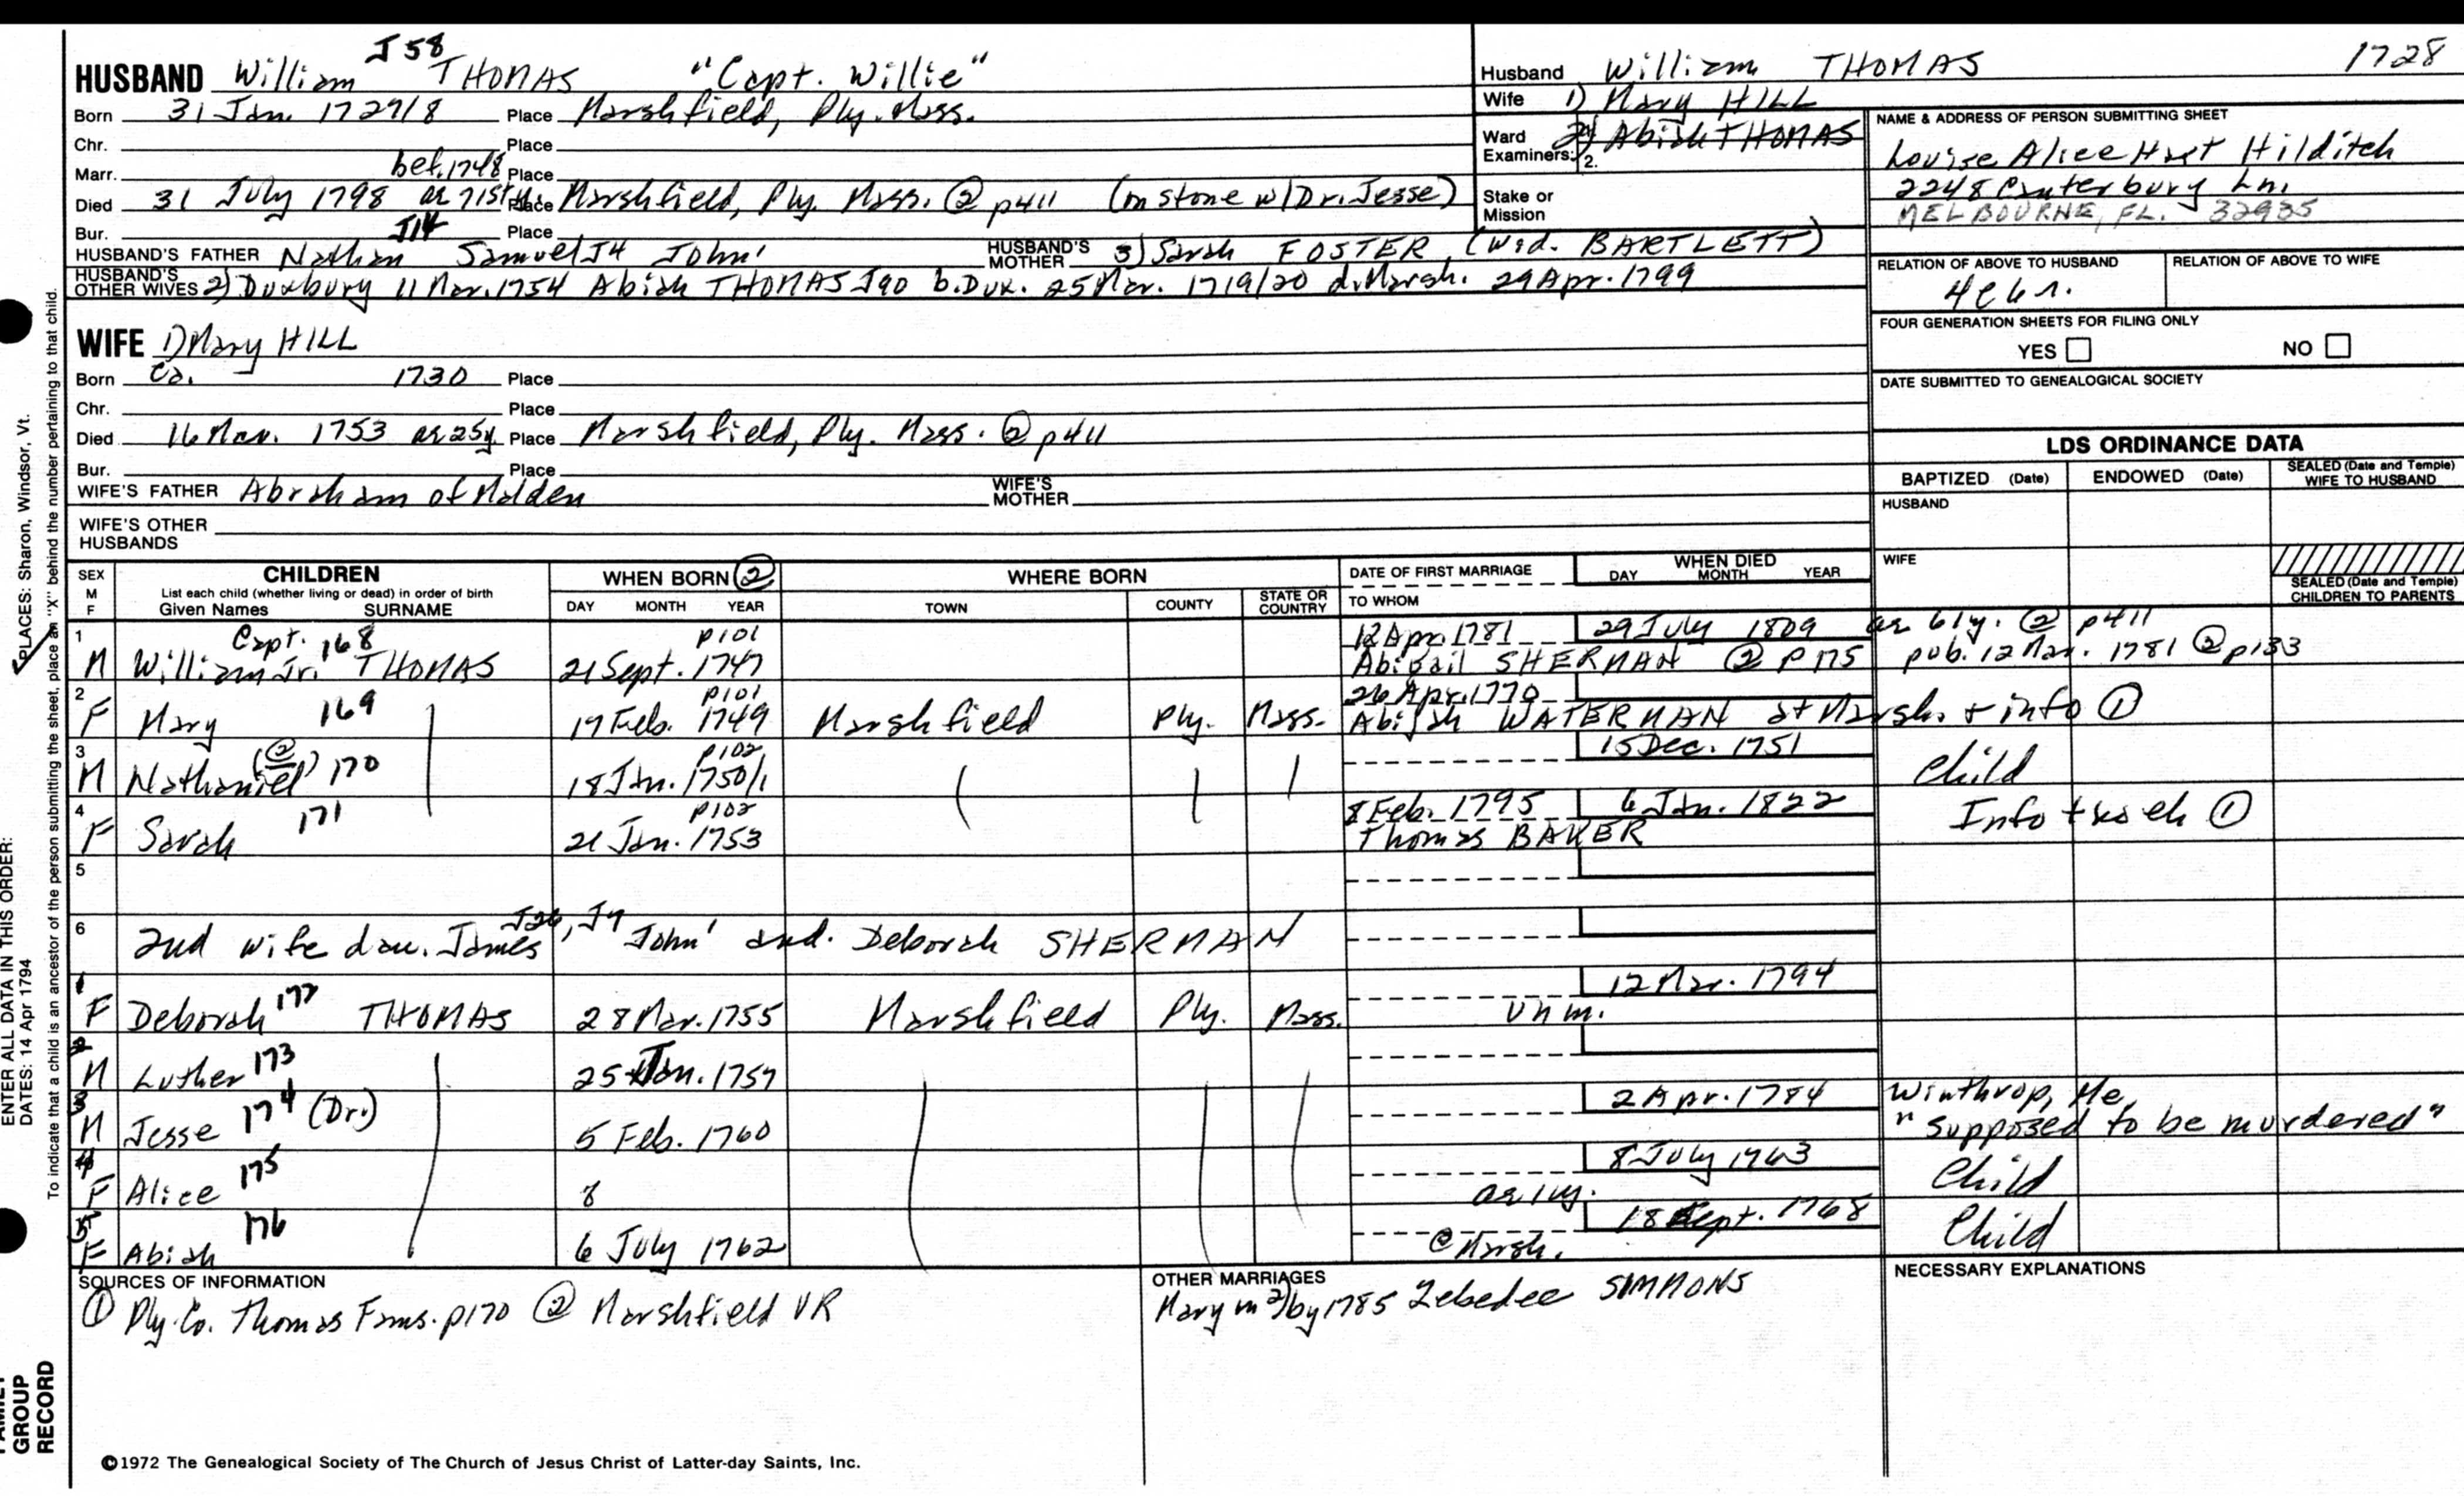 J58
HUSBAND William THOMAS "Capt. Willie"
Born 31 Jan. 1727/8 Place Marshfield, Ply. Mass.
Chr. Place
Marr. bef. 1748 Place
Died 31 July 1798 ae 71st y. Place Marshfield, Ply. Mass. ② p411 (on stone w/Dr. Jesse)
Bur. Place
HUSBAND'S FATHER Nathan J14 Samuel J4 John¹ HUSBAND'S MOTHER 3) Sarah FOSTER (Wid. BARTLETT)
HUSBAND'S OTHER WIVES 2) Duxbury 11 Mar. 1754 Abiah THOMAS J90 b. Dux. 25 Mar. 1719/20 d. Marsh. 29 Apr. 1799
WIFE 1) Mary HILL
Born Ca. 1730 Place
Chr. Place
Died 16 Mar. 1753 ae 25y. Place Marshfield, Ply. Mass. ② p411
Bur. Place
WIFE'S FATHER Abraham of Malden WIFE'S MOTHER
WIFE'S OTHER HUSBANDS
Husband William THOMAS 1728
Wife 1) Mary HILL
Ward Examiners: 2) Abiah THOMAS
2.
Stake or Mission
NAME & ADDRESS OF PERSON SUBMITTING SHEET
Louise Alice Hart Hilditch
2248 Canterbury Ln.
MELBOURNE, FL. 32935
RELATION OF ABOVE TO HUSBAND RELATION OF ABOVE TO WIFE
FOUR GENERATION SHEETS FOR FILING ONLY
YES NO
DATE SUBMITTED TO GENEALOGICAL SOCIETY
LDS ORDINANCE DATA
BAPTIZED (Date) ENDOWED (Date) SEALED (Date and Temple) WIFE TO HUSBAND
HUSBAND
WIFE
SEALED (Date and Temple) CHILDREN TO PARENTS
SEX M F CHILDREN List each child (whether living or dead) in order of birth Given Names SURNAME WHEN BORN ② DAY MONTH YEAR WHERE BORN TOWN COUNTY STATE OR COUNTRY DATE OF FIRST MARRIAGE TO WHOM WHEN DIED DAY MONTH YEAR
1 Capt. 168 p101 12 Apr. 1781 29 July 1809 ae 61y. ② p411
M William Jr. THOMAS 21 Sept. 1747 Abigail SHERMAN ② p175 pub. 12 Mar. 1781 ② p133
2 169 p101 26 Apr. 1770
F Mary 17 Feb. 1749 Marshfield Ply. Mass. Abijah WATERMAN at Marsh. + info ①
3 (②) 170 p102 15 Dec. 1751
M Nathaniel 18 Jan. 1750/1 Child
4 171 p102 8 Feb. 1795 6 Jan. 1822
F Sarah 21 Jan. 1753 Thomas BAKER Info ①
5
6 2nd wife dau. James J26, J7 John¹ and. Deborah SHERMAN
1 172 12 Mar. 1794
F Deborah THOMAS 28 Mar. 1755 Marshfield Ply. Mass. unm.
2
M Luther 173 25 Jan. 1757
3 2 Apr. 1784 Winthrop, Me.
M Jesse 174 (Dr.) 5 Feb. 1760 "supposed to be murdered"
4 8 July 1763
F Alice 175 ae 1y. Child
5 18 Sept. 1768
F Abiah 176 6 July 1762 @ Marsh. Child
SOURCES OF INFORMATION
① Ply. Co. Thomas Fams. p170 ② Marshfield VR
OTHER MARRIAGES
Mary m 2) by 1785 Zebedee SIMMONS
NECESSARY EXPLANATIONS
©1972 The Genealogical Society of The Church of Jesus Christ of Latter-day Saints, Inc.
PLACES: Sharon, Windsor, Vt.
To indicate that a child is an ancestor of the person submitting the sheet, place an "X" behind the number pertaining to that child.
ENTER ALL DATA IN THIS ORDER:
DATES: 14 Apr 1794
GROUP
RECORD